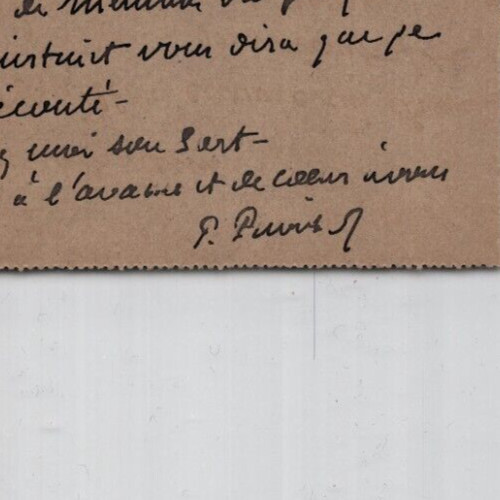 de
instruit vous dira que je
écouté -
moi son sort -
à l'avance et de coeur à vous
P. Puvis